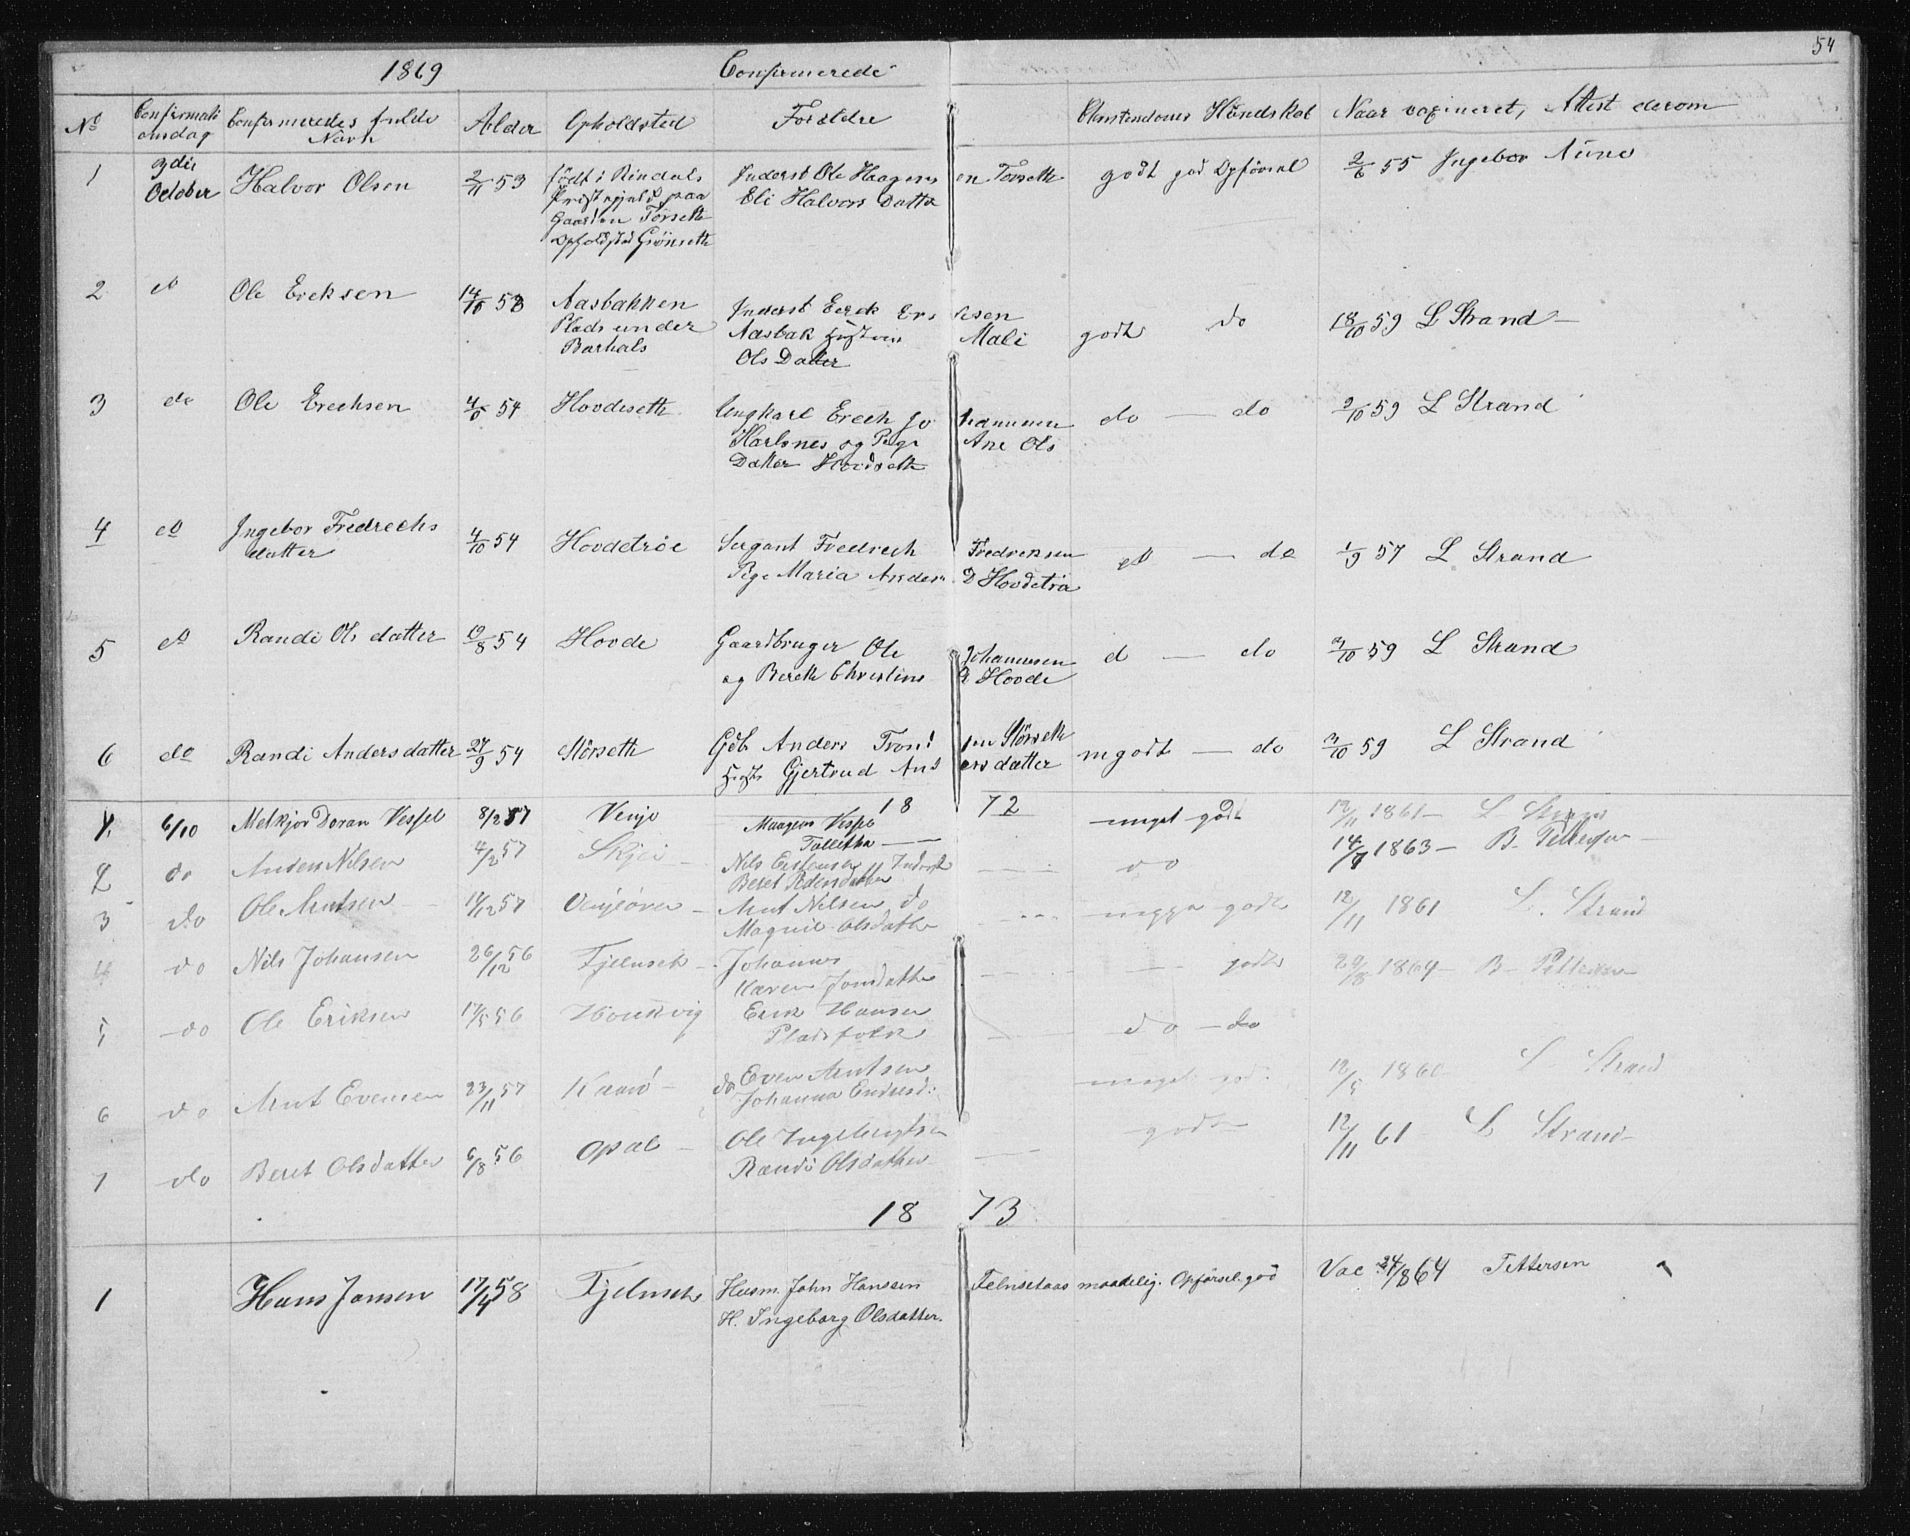 54
1869 Confirmerede
No Confirmationsdag Confirmeredes fulde Navn Alder Opholdsted Forældre Christendoms Kundskab Naar vaxineret, Attest derom
1 3die October Halvor Olsen 2/11 53 født i Rindals Prestegjeld paa Gaarden Torseth Opholdsted Grönseth
Inderst Ole Haagensen Torseth
Eli Halvors Datter
godt god Opførsel 2/6 55 Ingebor Aune
2 do Ole Ereksen 14/10 53 Aasbakken Plads under Barhals
Inderst Eerek Ereksen
Aasbak Hustruen Mali
Ols Datter
godt do 18/10 59 L Strand
3 do Ole Erecksen 4/5 54 Hovdeseth
Ungkarl Ereck Johannesen
Karlsnes og Pige Ane Ols
Datter Hovdseth
do — do 9/10 59 L Strand
4 do Ingebor Fredrechsdatter 4/10 54 Hovdetrøe
Sergant Fredrech Fredreksen
Pige Maria Anders D Hovdetrøa
do — do 1/9 57 L Strand
5 do Randi Ols datter 19/8 54 Hovde
Gaardbruger Ole Johannesen
og Bereth Christine Hovde
d — do 3/10 59 L Strand
6 do Randi Andersdatter 27/9 54 Störseth
Gdb Anders Trondsen Störseth
Hust Gjertrud Andersdatter
mgodt — do 3/10 59 L Strand
18 72
1 6/10 Melkjor Doran Vessel 8/2 57 Venjo
Maagens Vessel
Tallitha
meget godt 12/11 1861 — L Strand
2 do Anders Nilsen 4/2 57 Skjei
Nils Inderst
Beret
do 14/7 1863 —
3 do Ole Arntsen 17/12 57 Vinjeören
Arnt Nilsen do
Magnil Olsdatter
godt 12/11 1861 L. Strand
4 do Nils Johansen 26/12 56 Fjelnseth
Johannes
Karen Jonsdatter
godt 29/8 1864 — B Pettersen
5 do Ole Eriksen 17/5 56 Hönsvig
Erik Hansen
Pladsfolk
do — do
6 do Arnt Evensen 23/11 57
do Even Arntsen
Johanna Endresd:
meget god 12/5 1860 L Strand
7 do Beret Olsdatter 6/8 56 Opal
Ole Ingebrigtsen
Randi Olsdatter
godt 12/11 61 L Strand
18 73
1 Hans Jonsen 17/4 58 Fjelnseth
Husm. John Hanssen Felnsetaas
H. Ingeborg Olsdatter.
maadelig. Opførsel god Vac 24/8 64 Pettersen